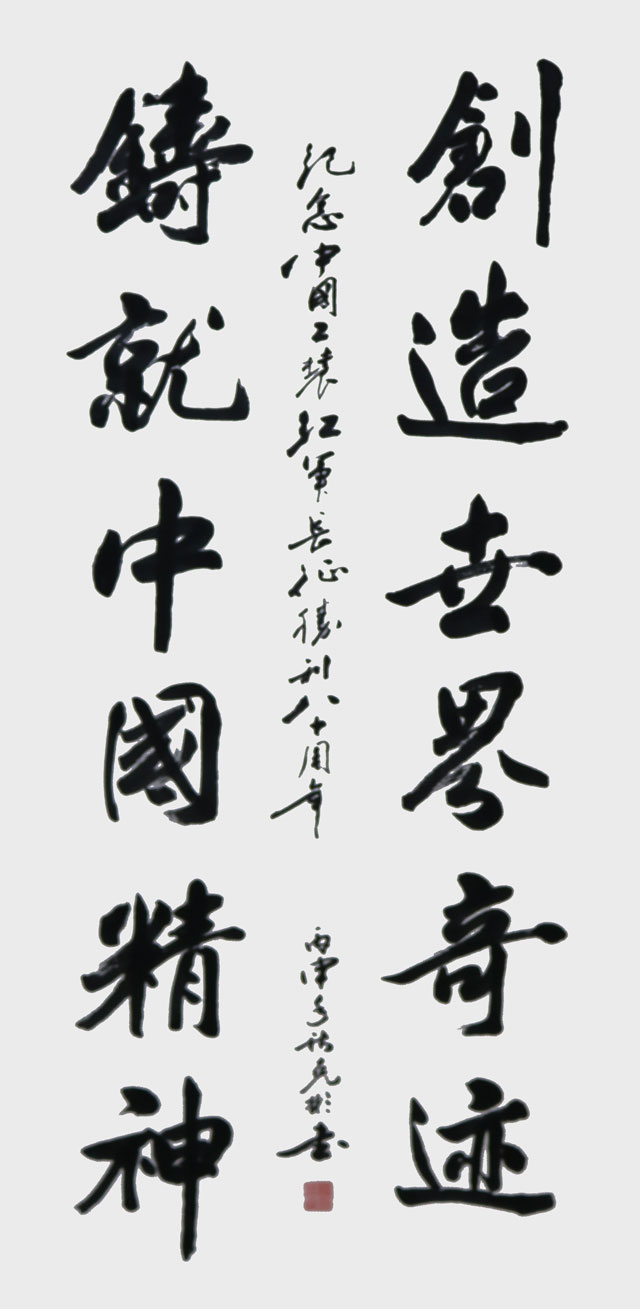 創造世界奇迹
鑄就中國精神
紀念中國工農紅軍長征勝利八十周年
丙申
書